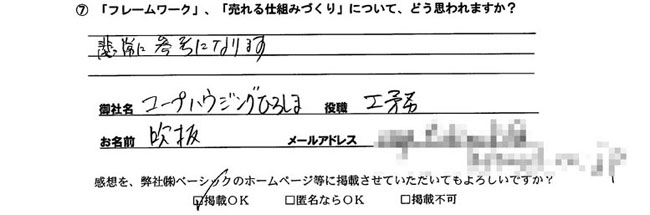 ⑦ 「フレームワーク」、「売れる仕組みづくり」について、どう思われますか?
非常に参考になります
御社名 コープハウジングひろしま 役職 工務
お名前 吹抜 メールアドレス
感想を、弊社㈱ベーシックのホームページ等に掲載させていただいてもよろしいですか?
☑掲載OK □匿名ならOK □掲載不可